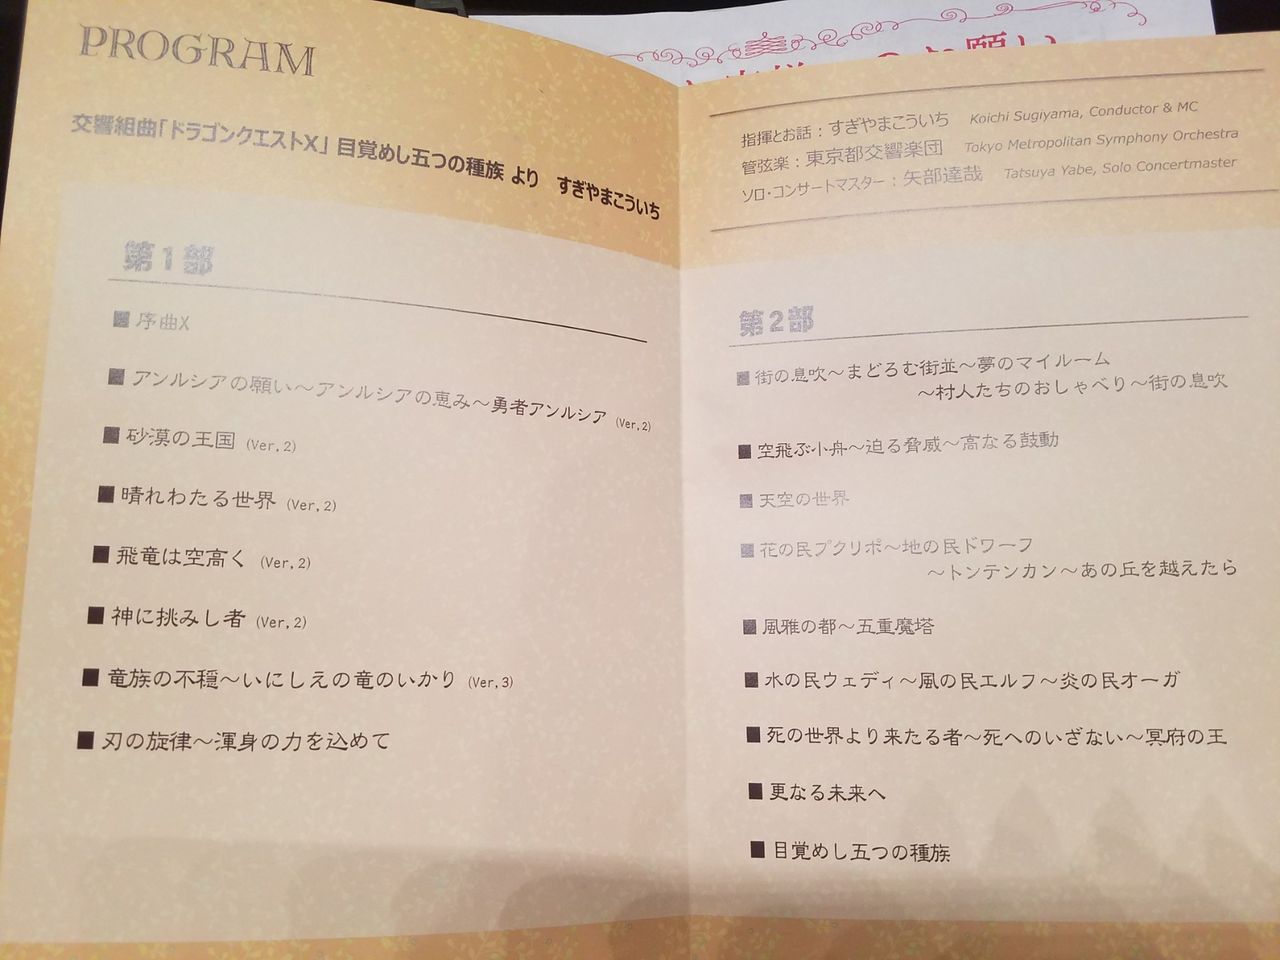 PROGRAM
交響組曲「ドラゴンクエストX」目覚めし五つの種族 より すぎやまこういち
第1部
■ 序曲X
■ アンルシアの願い～アンルシアの恵み～勇者アンルシア (Ver,2)
■ 砂漠の王国 (Ver,2)
■ 晴れわたる世界 (Ver,2)
■ 飛竜は空高く (Ver,2)
■ 神に挑みし者 (Ver,2)
■ 竜族の不穏～いにしえの竜のいかり (Ver,3)
■ 刃の旋律～渾身の力を込めて
の お願い
指揮とお話：すぎやまこういち Koichi Sugiyama, Conductor & MC
管弦楽：東京都交響楽団 Tokyo Metropolitan Symphony Orchestra
ソロ・コンサートマスター：矢部達哉 Tatsuya Yabe, Solo Concertmaster
第2部
■ 街の息吹～まどろむ街並～夢のマイルーム
～村人たちのおしゃべり～街の息吹
■ 空飛ぶ小舟～迫る脅威～高なる鼓動
■ 天空の世界
■ 花の民プクリポ～地の民ドワーフ
～トンテンカン～あの丘を越えたら
■ 風雅の都～五重魔塔
■ 水の民ウェディ～風の民エルフ～炎の民オーガ
■ 死の世界より来たる者～死へのいざない～冥府の王
■ 更なる未来へ
■ 目覚めし五つの種族